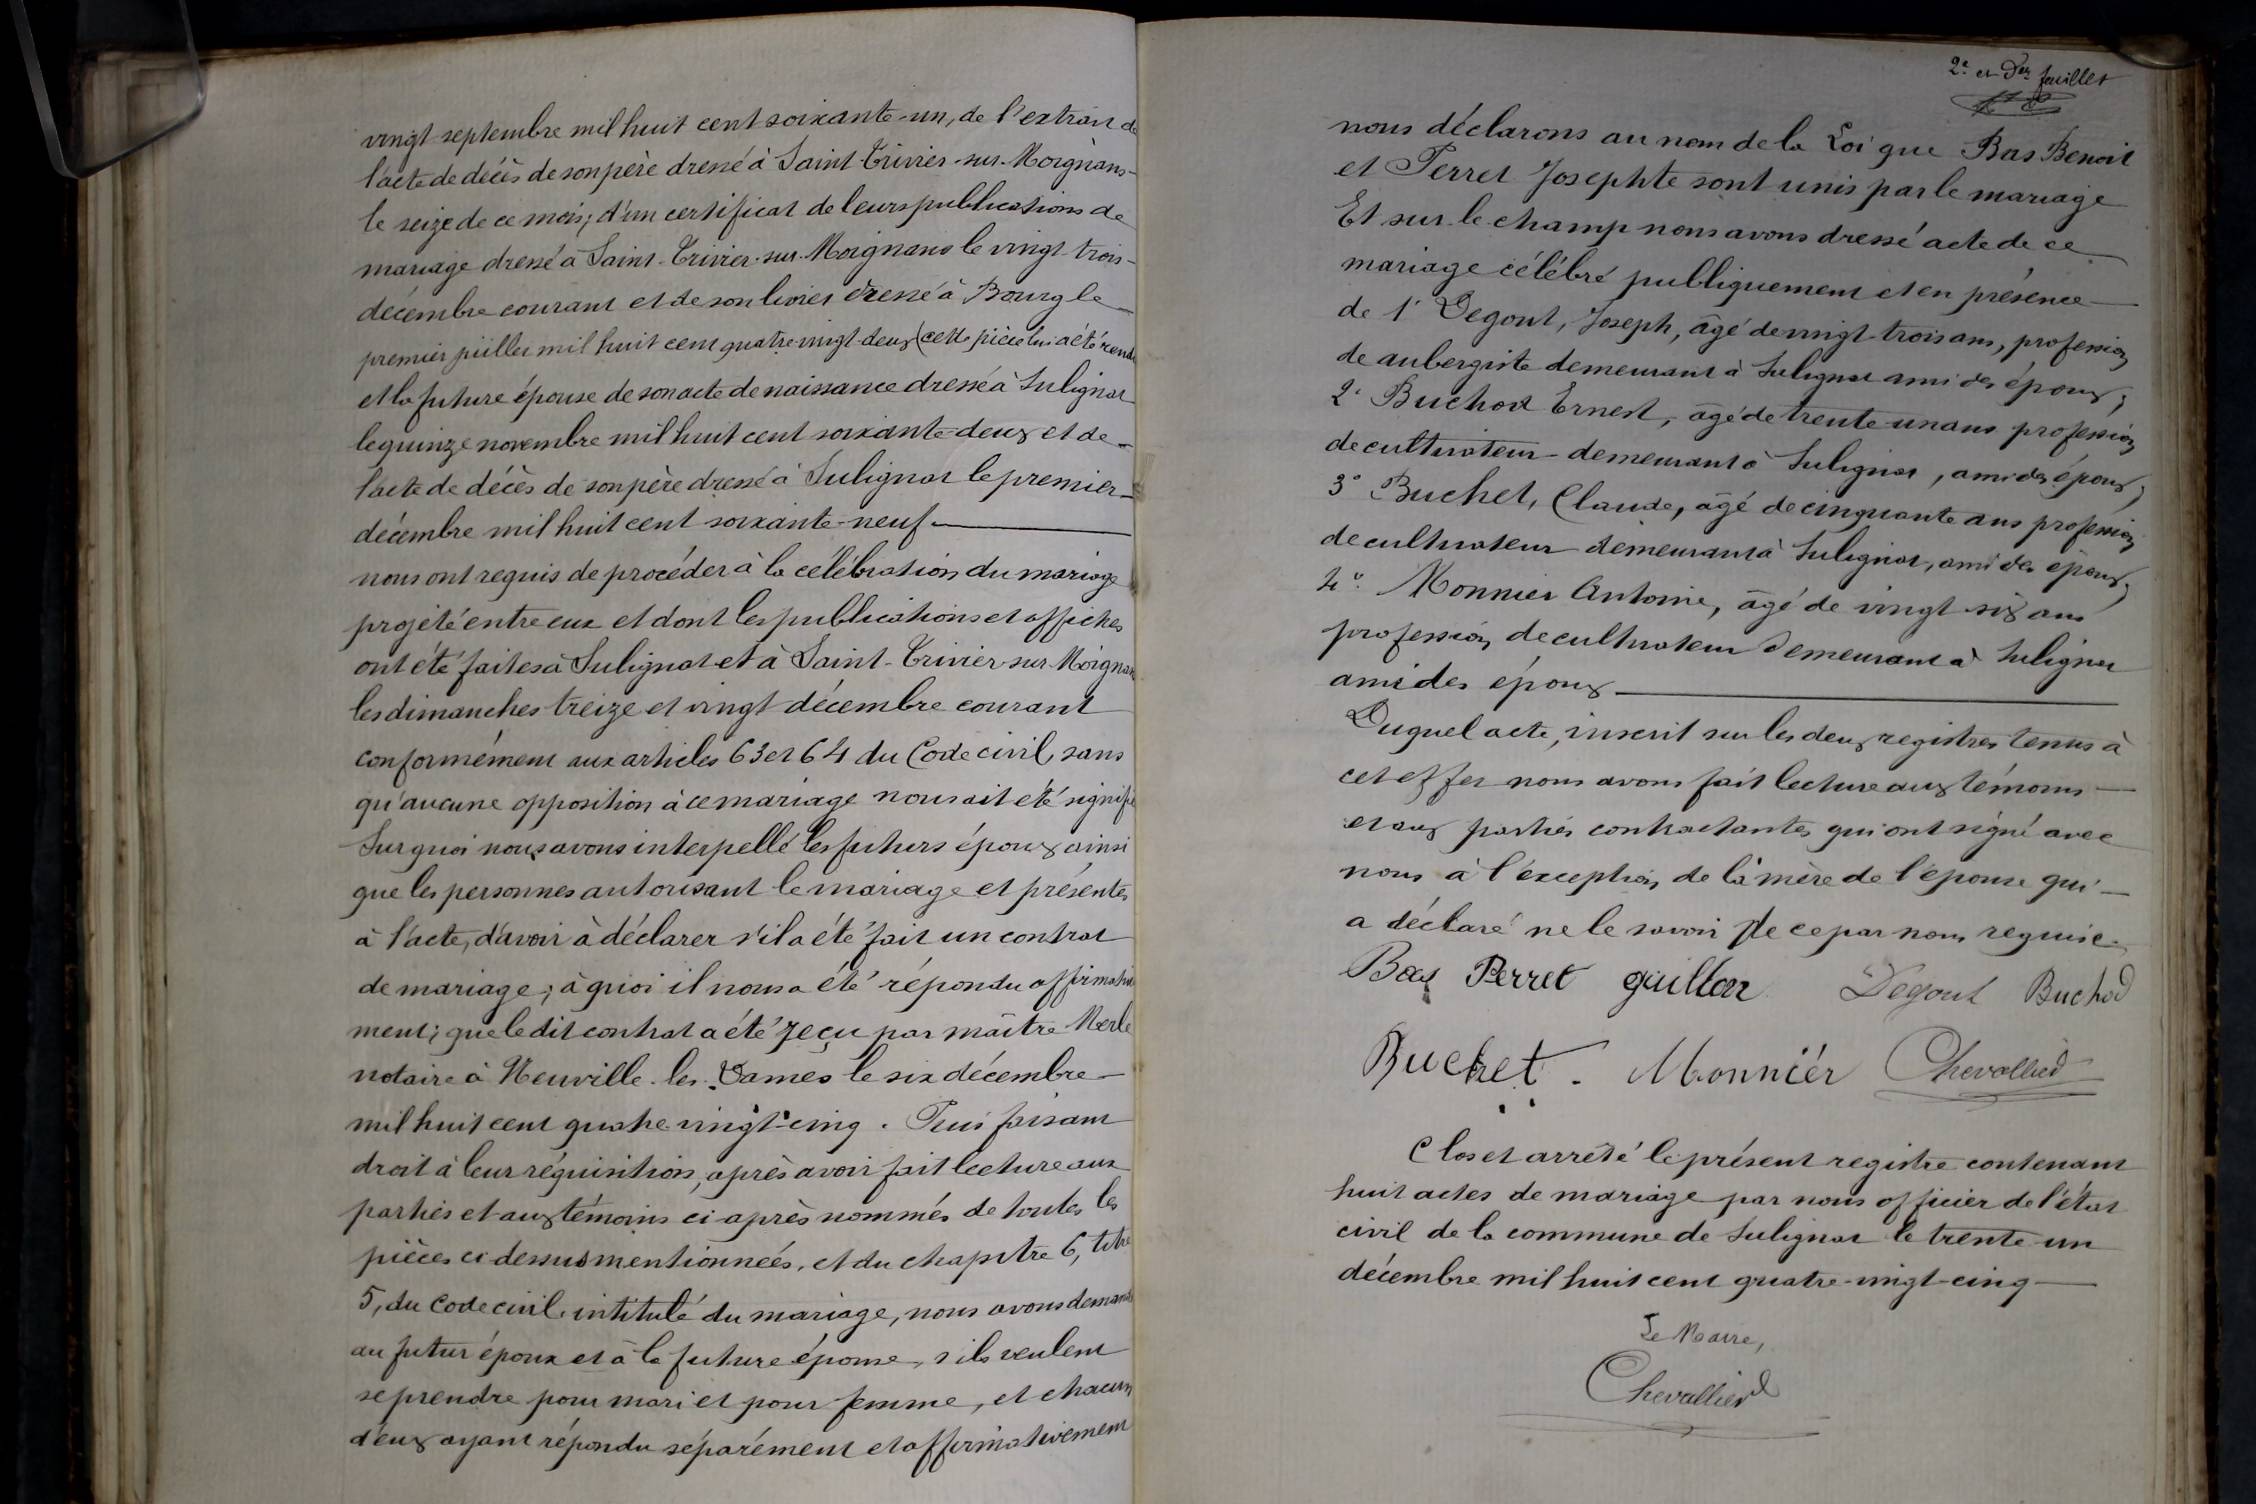 vingt septembre mil huit cent soixante-un, de l'extrait de
l'acte de décès de son père dressé à Saint-Trivier-sur-Moignans
le seize de ce mois; d'un certificat de leurs publications de
mariage dressé à Saint-Trivier-sur-Moignans le vingt-trois
décembre courant et de son livret dressé à Bourg le
premier juillet mil huit cent quatre-vingt-deux (cette pièce lui a été rendu
et la future épouse de son acte de naissance dressé à Sulignat
le quinze novembre mil huit cent soixante-deux et de
l'acte de décès de son père dressé à Sulignat le premier
décembre mil huit cent soixante-neuf
nous ont requis de procéder à la célébration du mariage
projeté entre eux et dont les publications et affiches
ont été faites à Sulignat et à Saint-Trivier-sur-Moignans
les dimanches treize et vingt décembre courant
conformément aux articles 63 et 64 du Code civil, sans
qu'aucune opposition à ce mariage nous ait été signifié
Sur quoi nous avons interpellé les futurs époux ainsi
que les personnes autorisant le mariage et présentes
à l'acte, d'avoir à déclarer s'il a été fait un contrat
de mariage; à quoi il nous a été répondu affirmative
ment; que le dit contrat a été reçu par maître Merle
notaire à Neuville-les-Dames le six décembre
mil huit cent quatre-vingt-cinq. Puis faisant
droit à leur réquisition, après avoir fait lecture aux
parties et aux témoins ci-après nommés de toutes les
pièces ci-dessus mentionnées, et du chapitre 6, titre
5, du Code civil intitulé du mariage, nous avons demandé
au futur époux et à la future épouse, s'ils veulent
se prendre pour mari et pour femme, et chacun
d'eux ayant répondu séparément et affirmativement
2e et Der feuillet
nous déclarons au nom de la Loi que Bas Benoit
et Perret Josephte sont unis par le mariage
Et sur le champ nous avons dressé acte de ce
mariage célébré publiquement et en présence
de 1° Degout, Joseph, âgé de vingt-trois ans, profession
de aubergiste demeurant à Sulignat ami des époux;
2° Buchod Ernest, âgé de trente-un ans profession
de cultivateur demeurant à Sulignat, ami des époux;
3° Buchet, Claude, âgé de cinquante ans profession
de cultivateur demeurant à Sulignat, ami des époux;
4° Monnier Antoine, âgé de vingt-six ans
profession de cultivateur demeurant à Sulignat
ami des époux
Duquel acte, inscrit sur les deux registres tenus à
cet effet nous avons fait lecture aux témoins
et aux parties contractantes qui ont signé avec
nous à l'exception de la mère de l'épouse qui
a déclaré ne le savoir de ce par nous requise
Bas Perret guillon Degout Buchod
Buchet. Monniér Chevallier
Clos et arrêté le présent registre contenant
huit actes de mariage par nous officier de l'état
civil de la commune de Sulignat le trente-un
décembre mil huit cent quatre-vingt-cinq
Le Maire,
Chevallier